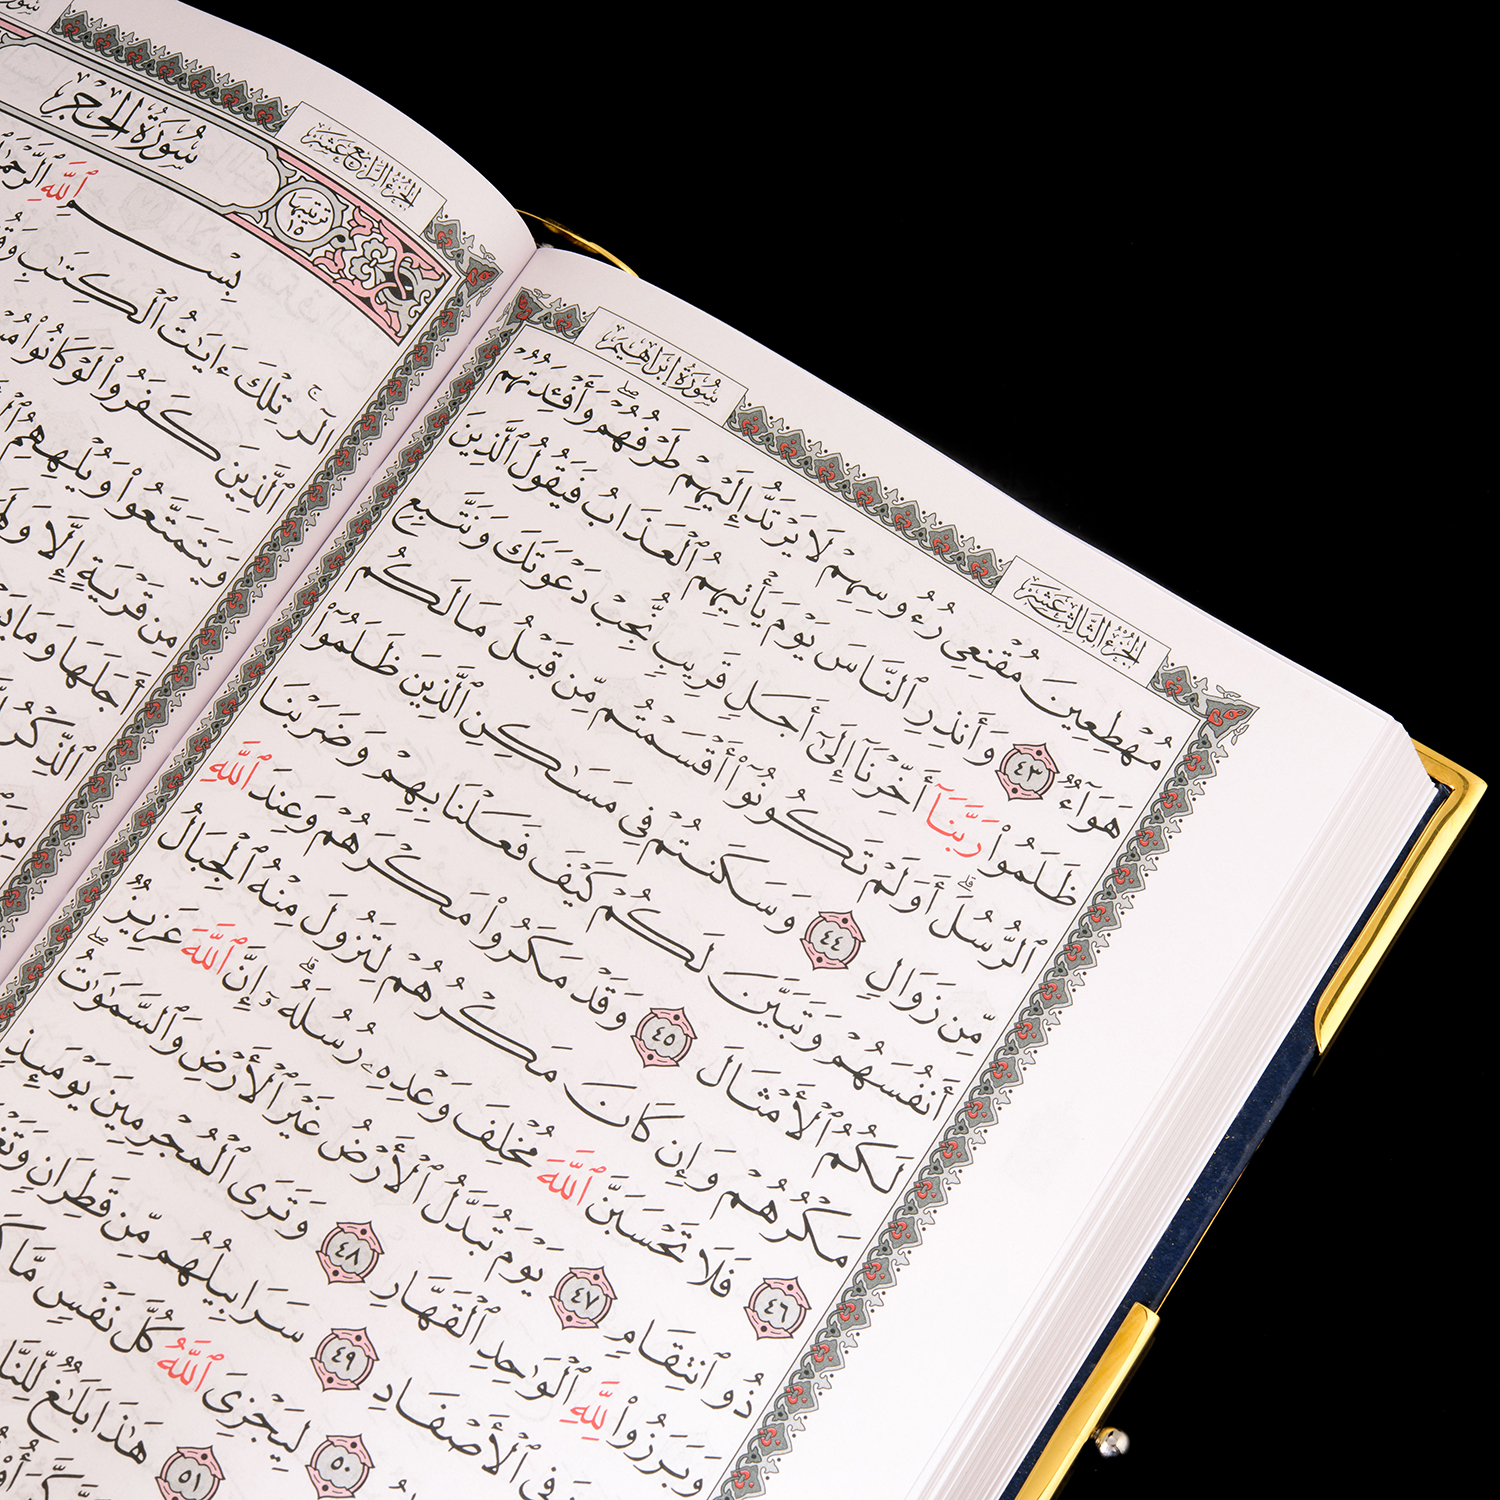 سُورَةُ إِبْرَاهِيمَ
الجُزْءُ الثَّالِثَ عَشَرَ
مُهْطِعِينَ مُقْنِعِى رُءُوسِهِمْ لَا يَرْتَدُّ إِلَيْهِمْ طَرْفُهُمْ ۖ وَأَفْـِٔدَتُهُمْ
هَوَآءٌ ٤٣ وَأَنذِرِ ٱلنَّاسَ يَوْمَ يَأْتِيهِمُ ٱلْعَذَابُ فَيَقُولُ ٱلَّذِينَ
ظَلَمُوا۟ رَبَّنَآ أَخِّرْنَآ إِلَىٰٓ أَجَلٍ قَرِيبٍ نُّجِبْ دَعْوَتَكَ وَنَتَّبِعِ
ٱلرُّسُلَ ۗ أَوَلَمْ تَكُونُوٓا۟ أَقْسَمْتُم مِّن قَبْلُ مَا لَكُم
مِّن زَوَالٍ ٤٤ وَسَكَنتُمْ فِى مَسَٰكِنِ ٱلَّذِينَ ظَلَمُوٓا۟
أَنفُسَهُمْ وَتَبَيَّنَ لَكُمْ كَيْفَ فَعَلْنَا بِهِمْ وَضَرَبْنَا
لَكُمُ ٱلْأَمْثَالَ ٤٥ وَقَدْ مَكَرُوا۟ مَكْرَهُمْ وَعِندَ ٱللَّهِ
مَكْرُهُمْ وَإِن كَانَ مَكْرُهُمْ لِتَزُولَ مِنْهُ ٱلْجِبَالُ
٤٦ فَلَا تَحْسَبَنَّ ٱللَّهَ مُخْلِفَ وَعْدِهِۦ رُسُلَهُۥٓ ۗ إِنَّ ٱللَّهَ عَزِيزٌ
ذُو ٱنتِقَامٍ ٤٧ يَوْمَ تُبَدَّلُ ٱلْأَرْضُ غَيْرَ ٱلْأَرْضِ وَٱلسَّمَٰوَٰتُ ۖ
وَبَرَزُوا۟ لِلَّهِ ٱلْوَٰحِدِ ٱلْقَهَّارِ ٤٨ وَتَرَى ٱلْمُجْرِمِينَ يَوْمَئِذٍ
فِى ٱلْأَصْفَادِ ٤٩ سَرَابِيلُهُم مِّن قَطِرَانٍ
٥٠ لِيَجْزِىَ ٱللَّهُ كُلَّ نَفْسٍ مَّا
٥١ هَٰذَا بَلَٰغٌ
الجُزْءُ الرَّابِعَ عَشَرَ
سُورَةُ الحِجْرِ
تَرْتِيبُهَا ١٥
بِسْمِ ٱللَّهِ
الٓر ۚ تِلْكَ ءَايَٰتُ ٱلْكِتَٰبِ
ٱلَّذِينَ كَفَرُوا۟ لَوْ كَانُوا۟
وَيَتَمَتَّعُوا۟ وَيُلْهِهِمُ
مِن قَرْيَةٍ إِلَّا
أَجَلَهَا وَمَا
ٱلذِّكْرُ